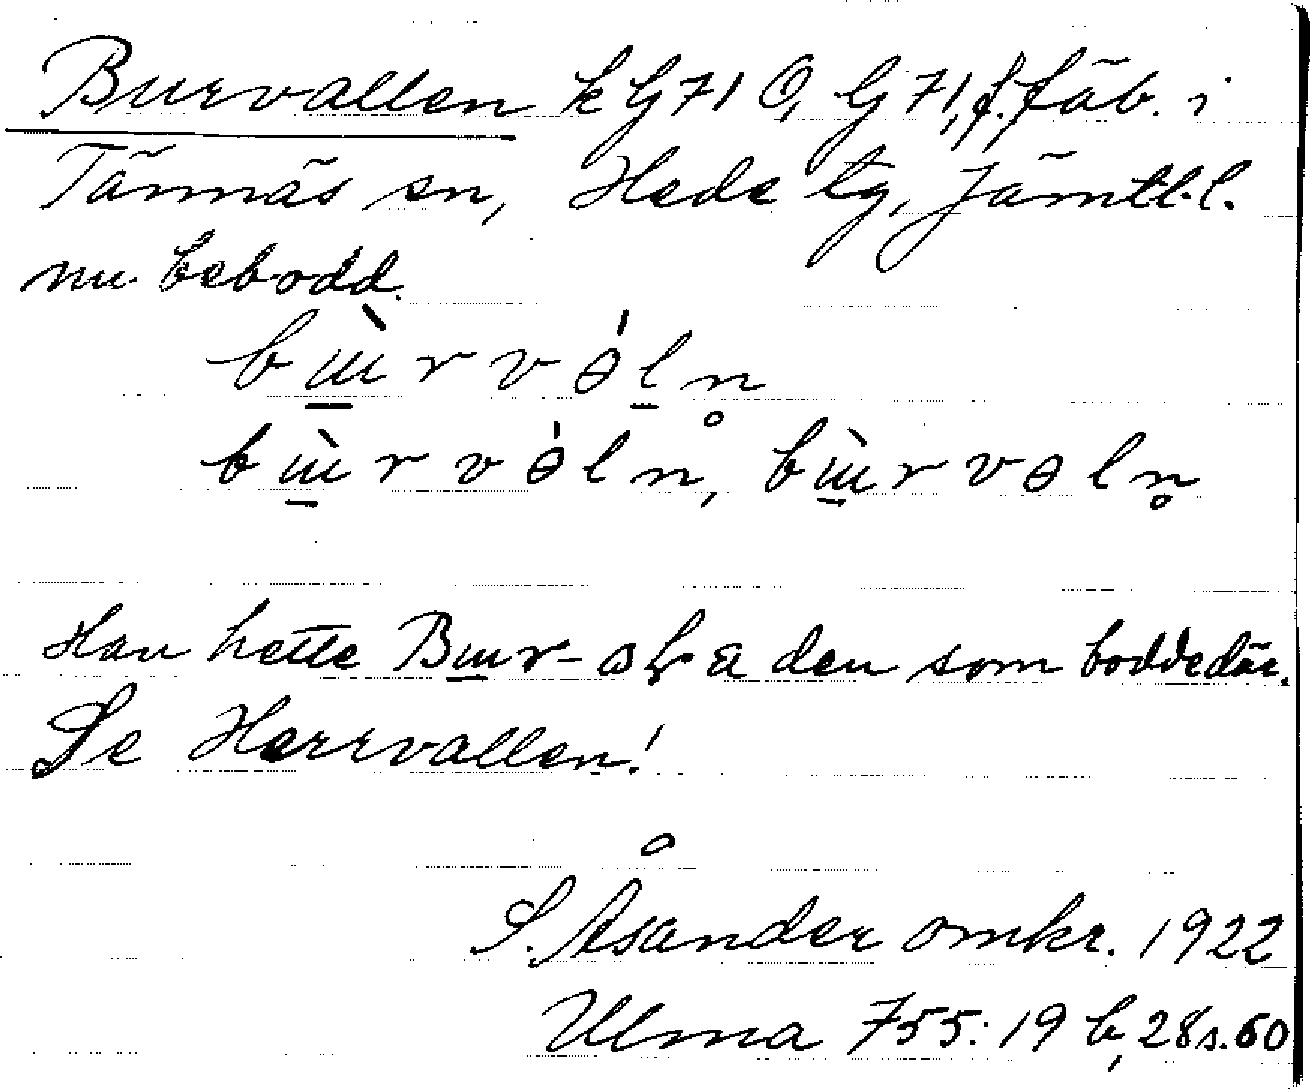 Burvallen k G 71 O, G 71, f. fäb. i
Tännäs sn, Hede tg, Jämtl. l.
nu bebodd.
bɯ̀rvɵ́ln̥
bɯ̀rvɵ̀ln, bɯ̀rvɵln̥
Han hette Bɯr- den som bodde där.
Se Herrvallen!
S. Åsander omkr. 1922
Ulma 755: 19 b, 28 s. 60